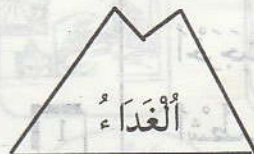 اُلْغَدَاءُ